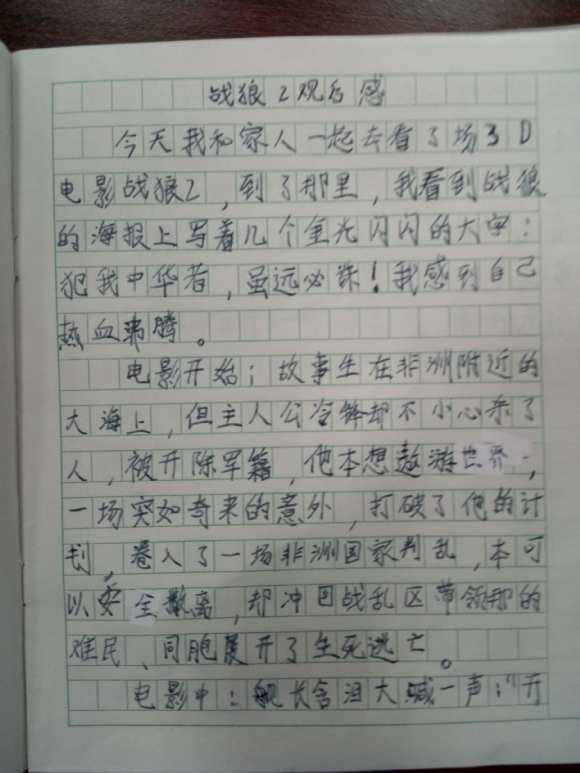 战狼2观后感
今天我和家人一起去看了场3D
电影战狼2，到了那里，我看到战狼
的海报上写着几个金光闪闪的大字：
犯我中华者，虽远必诛！我感到自己
热血沸腾。
电影开始；故事生在非洲附近的
大海上，但主人公冷锋却不小心杀了
人，被开除军籍，他本想遨游世界，
一场突如奇来的意外，打破了他的计
划，卷入了一场非洲国家判乱，本可
以安全撤离，却冲回战乱区带领那的
难民、同胞展开了生死逃亡。
电影中：舰长含泪大喊一声；“开